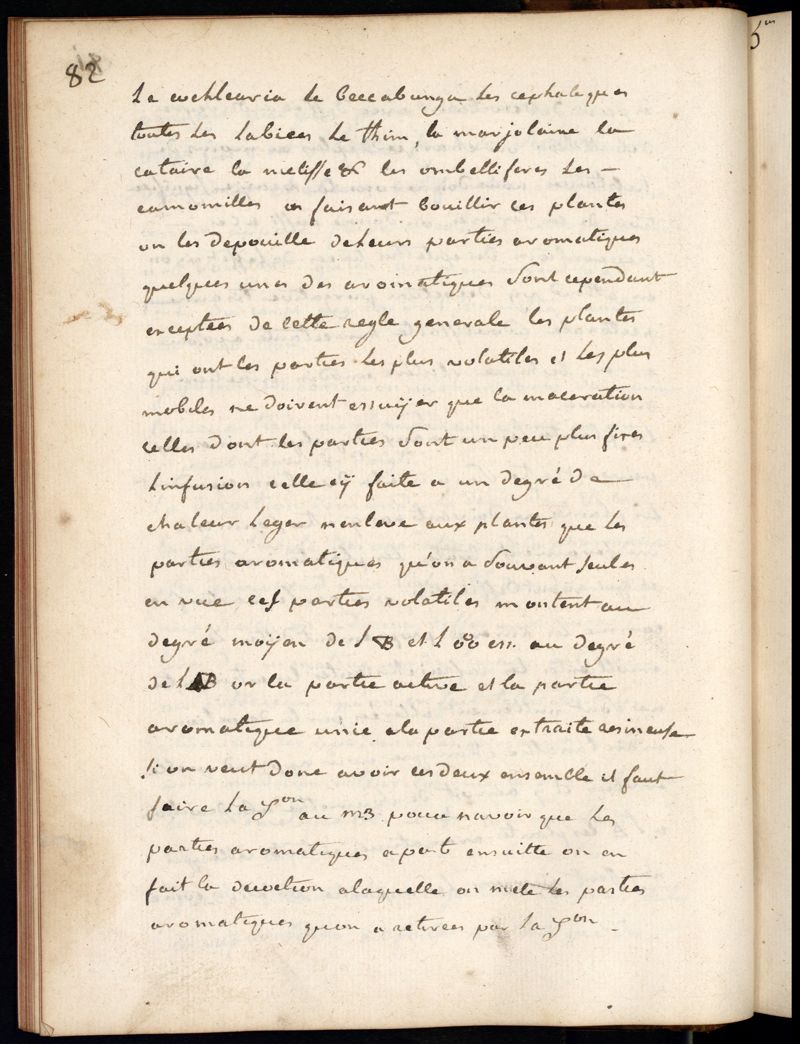 82
Le cochlearia le beccabunga Les cephaliques
toutes Les Labiees Le thim, la marjolaine la
cataire la melisse & les ombelliferes Les –
camomilles en faisant bouillir ces plantes
on les depouille de Leurs parties aromatiques
quelques unes des aromatiques sont cependant
exceptees de cette regle generale les plantes
qui ont les parties Les plus volatiles et Les plus
mobiles ne doivent essuÿer que la maceration
celles dont les parties sont un peu plus fixes
Linfusion celle cÿ faite a un degré de
chaleur Leger n'enleve aux plantes que les
parties aromatiques qu'on a souvent seules
en vue ces parties volatiles montent au
degré moÿen de L et L ess. au degré
de L or la partie active et la partie
aromatique unie a la partie extraite resineuse
si on veut donc avoir ces deux ensemble il faut
faire La on au mB pour n'avoir que Les
parties aromatiques apart ensuitte on en
fait la decoction alaquelle on mele Les parties
aromatiques quon a retirees par La on.